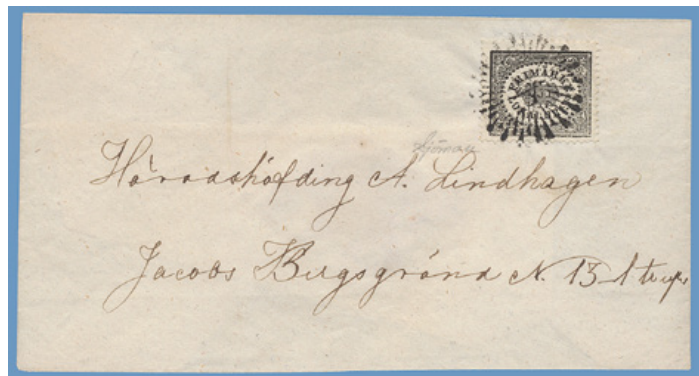 FRIMÄRKE
Häradshöfding A. Lindhagen
Jacobs Bergsgränd N. 13 1 trup.